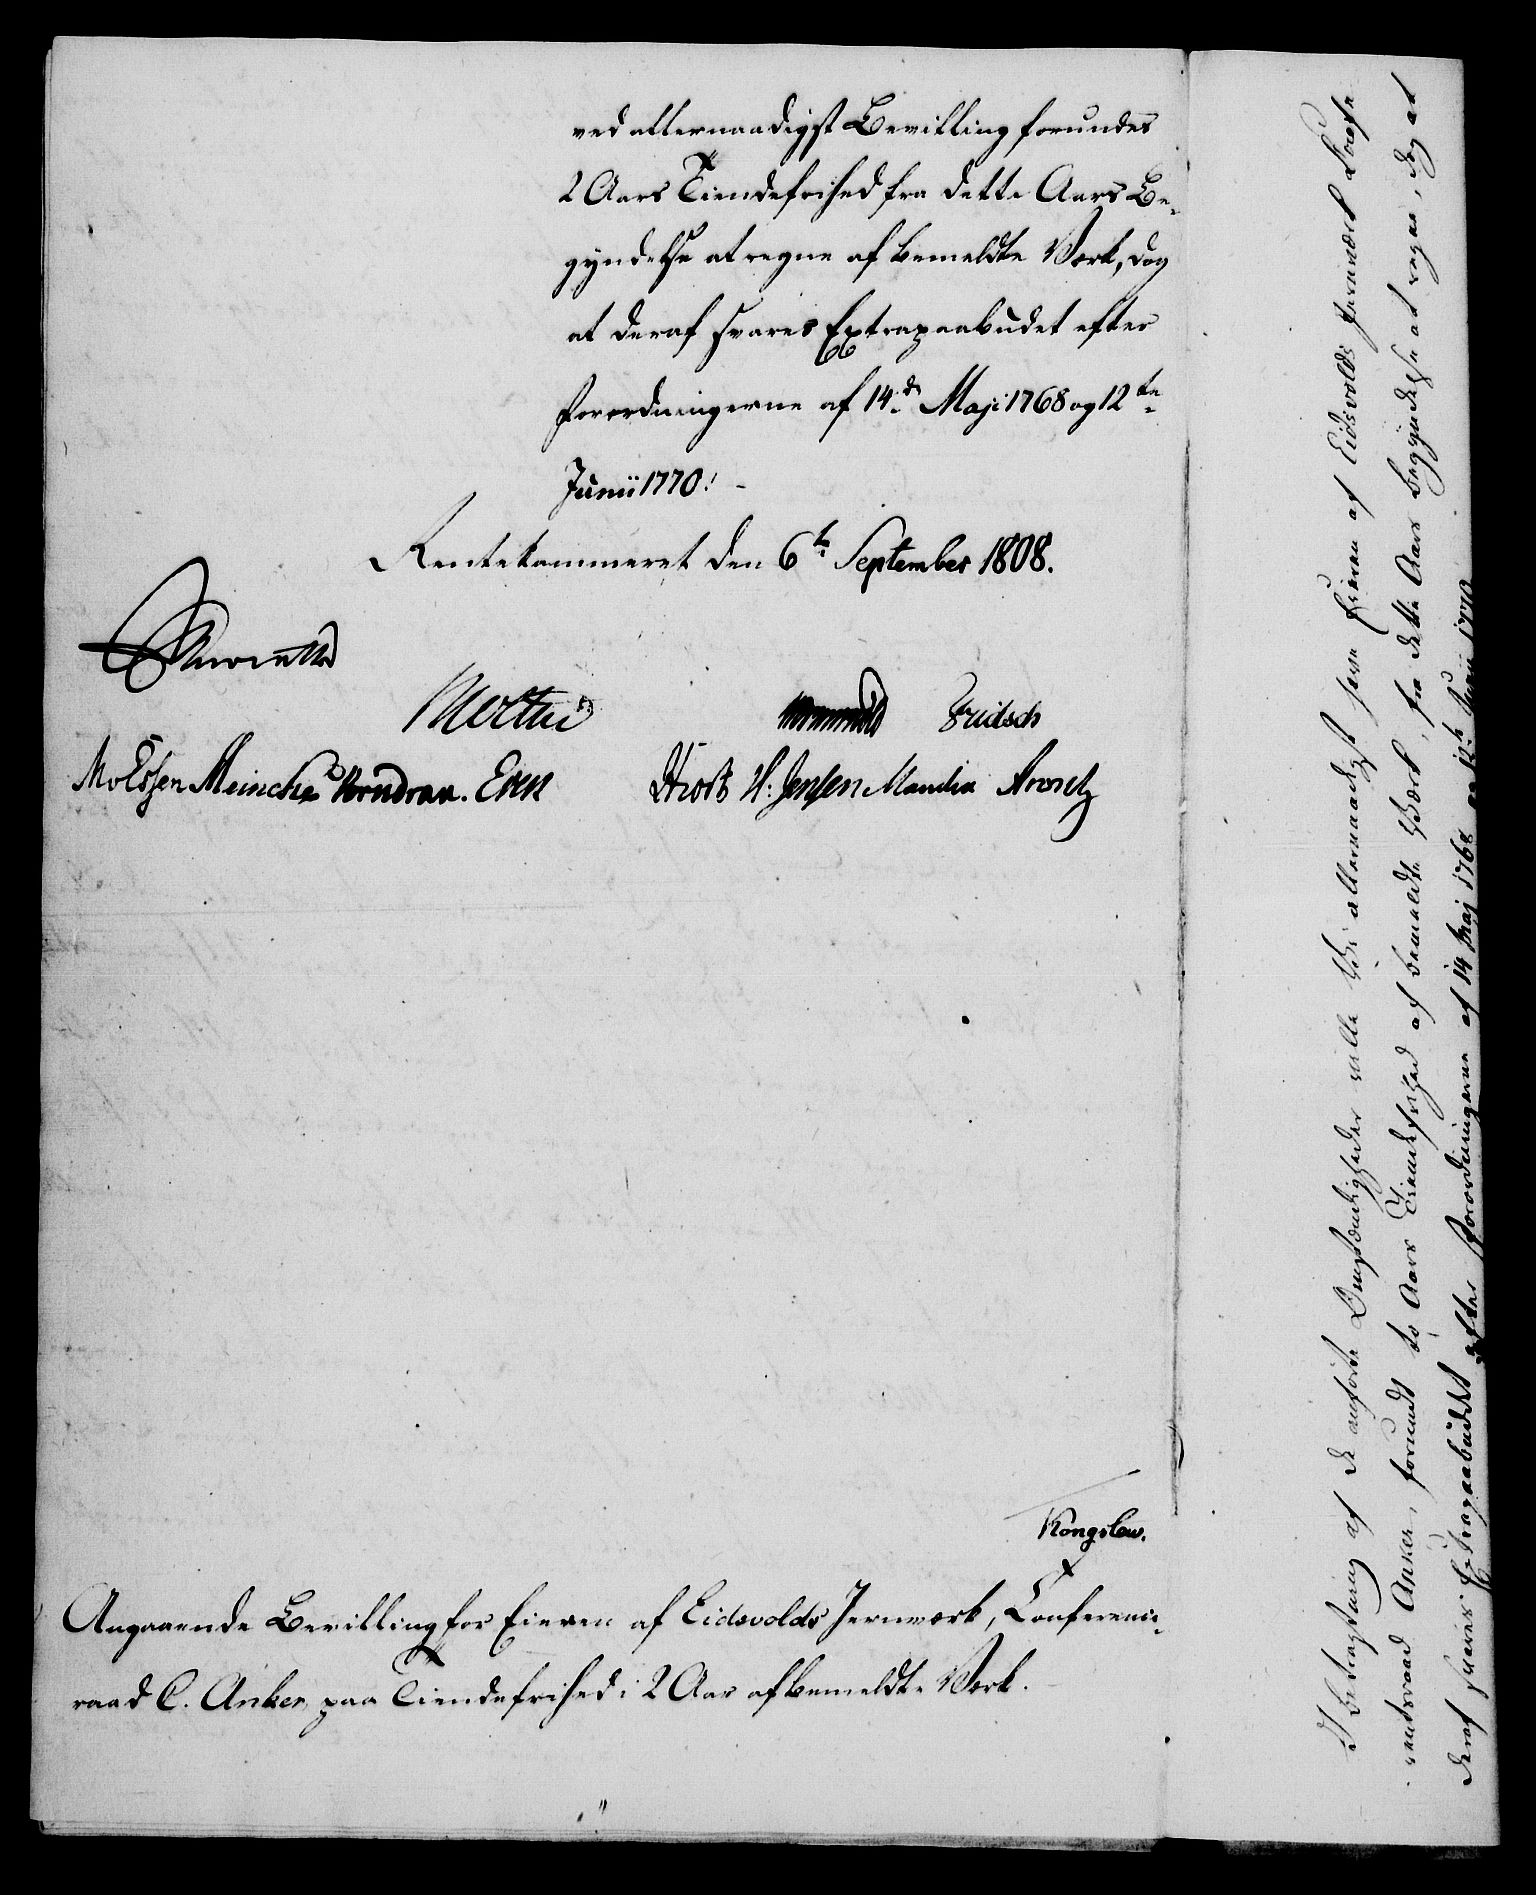 ved allernaadigst Bevilling forundes
2 Aars Tiendefrihed fra dette Aars Be-
gyndelse at regne af bemeldte Værk, dog
at deraf svares Extrapaabudet efter
Forordningerne af 14.de Maji 1768 og 12te
Junii 1770! -
Rentekammeret den 6te September 1808.
Molthe
Fridsch
Meincke Wendran. Even
H: Jensen Mandix Arentz
Kongslew.
Angaaende Bevilling for Eieren af Eidsvolds Jernværk, Conferenz-
raad C. Anker, paa Tiendefrihed i 2 Aar af bemeldte Værk.
I Betragtning af de anførte Omstændigheder ville Vi allernaadigst have Eieren af Eidsvolds Jernværk Confe-
rentsraad Anker, forundt to Aars Tiendefrihed af bemeldte Værk, fra dette Aars Begyndelse at regne, dog at
deraf svares Extrapaabudet efter Forordningerne af 14 Maj 1768 og 12te Junii 1770